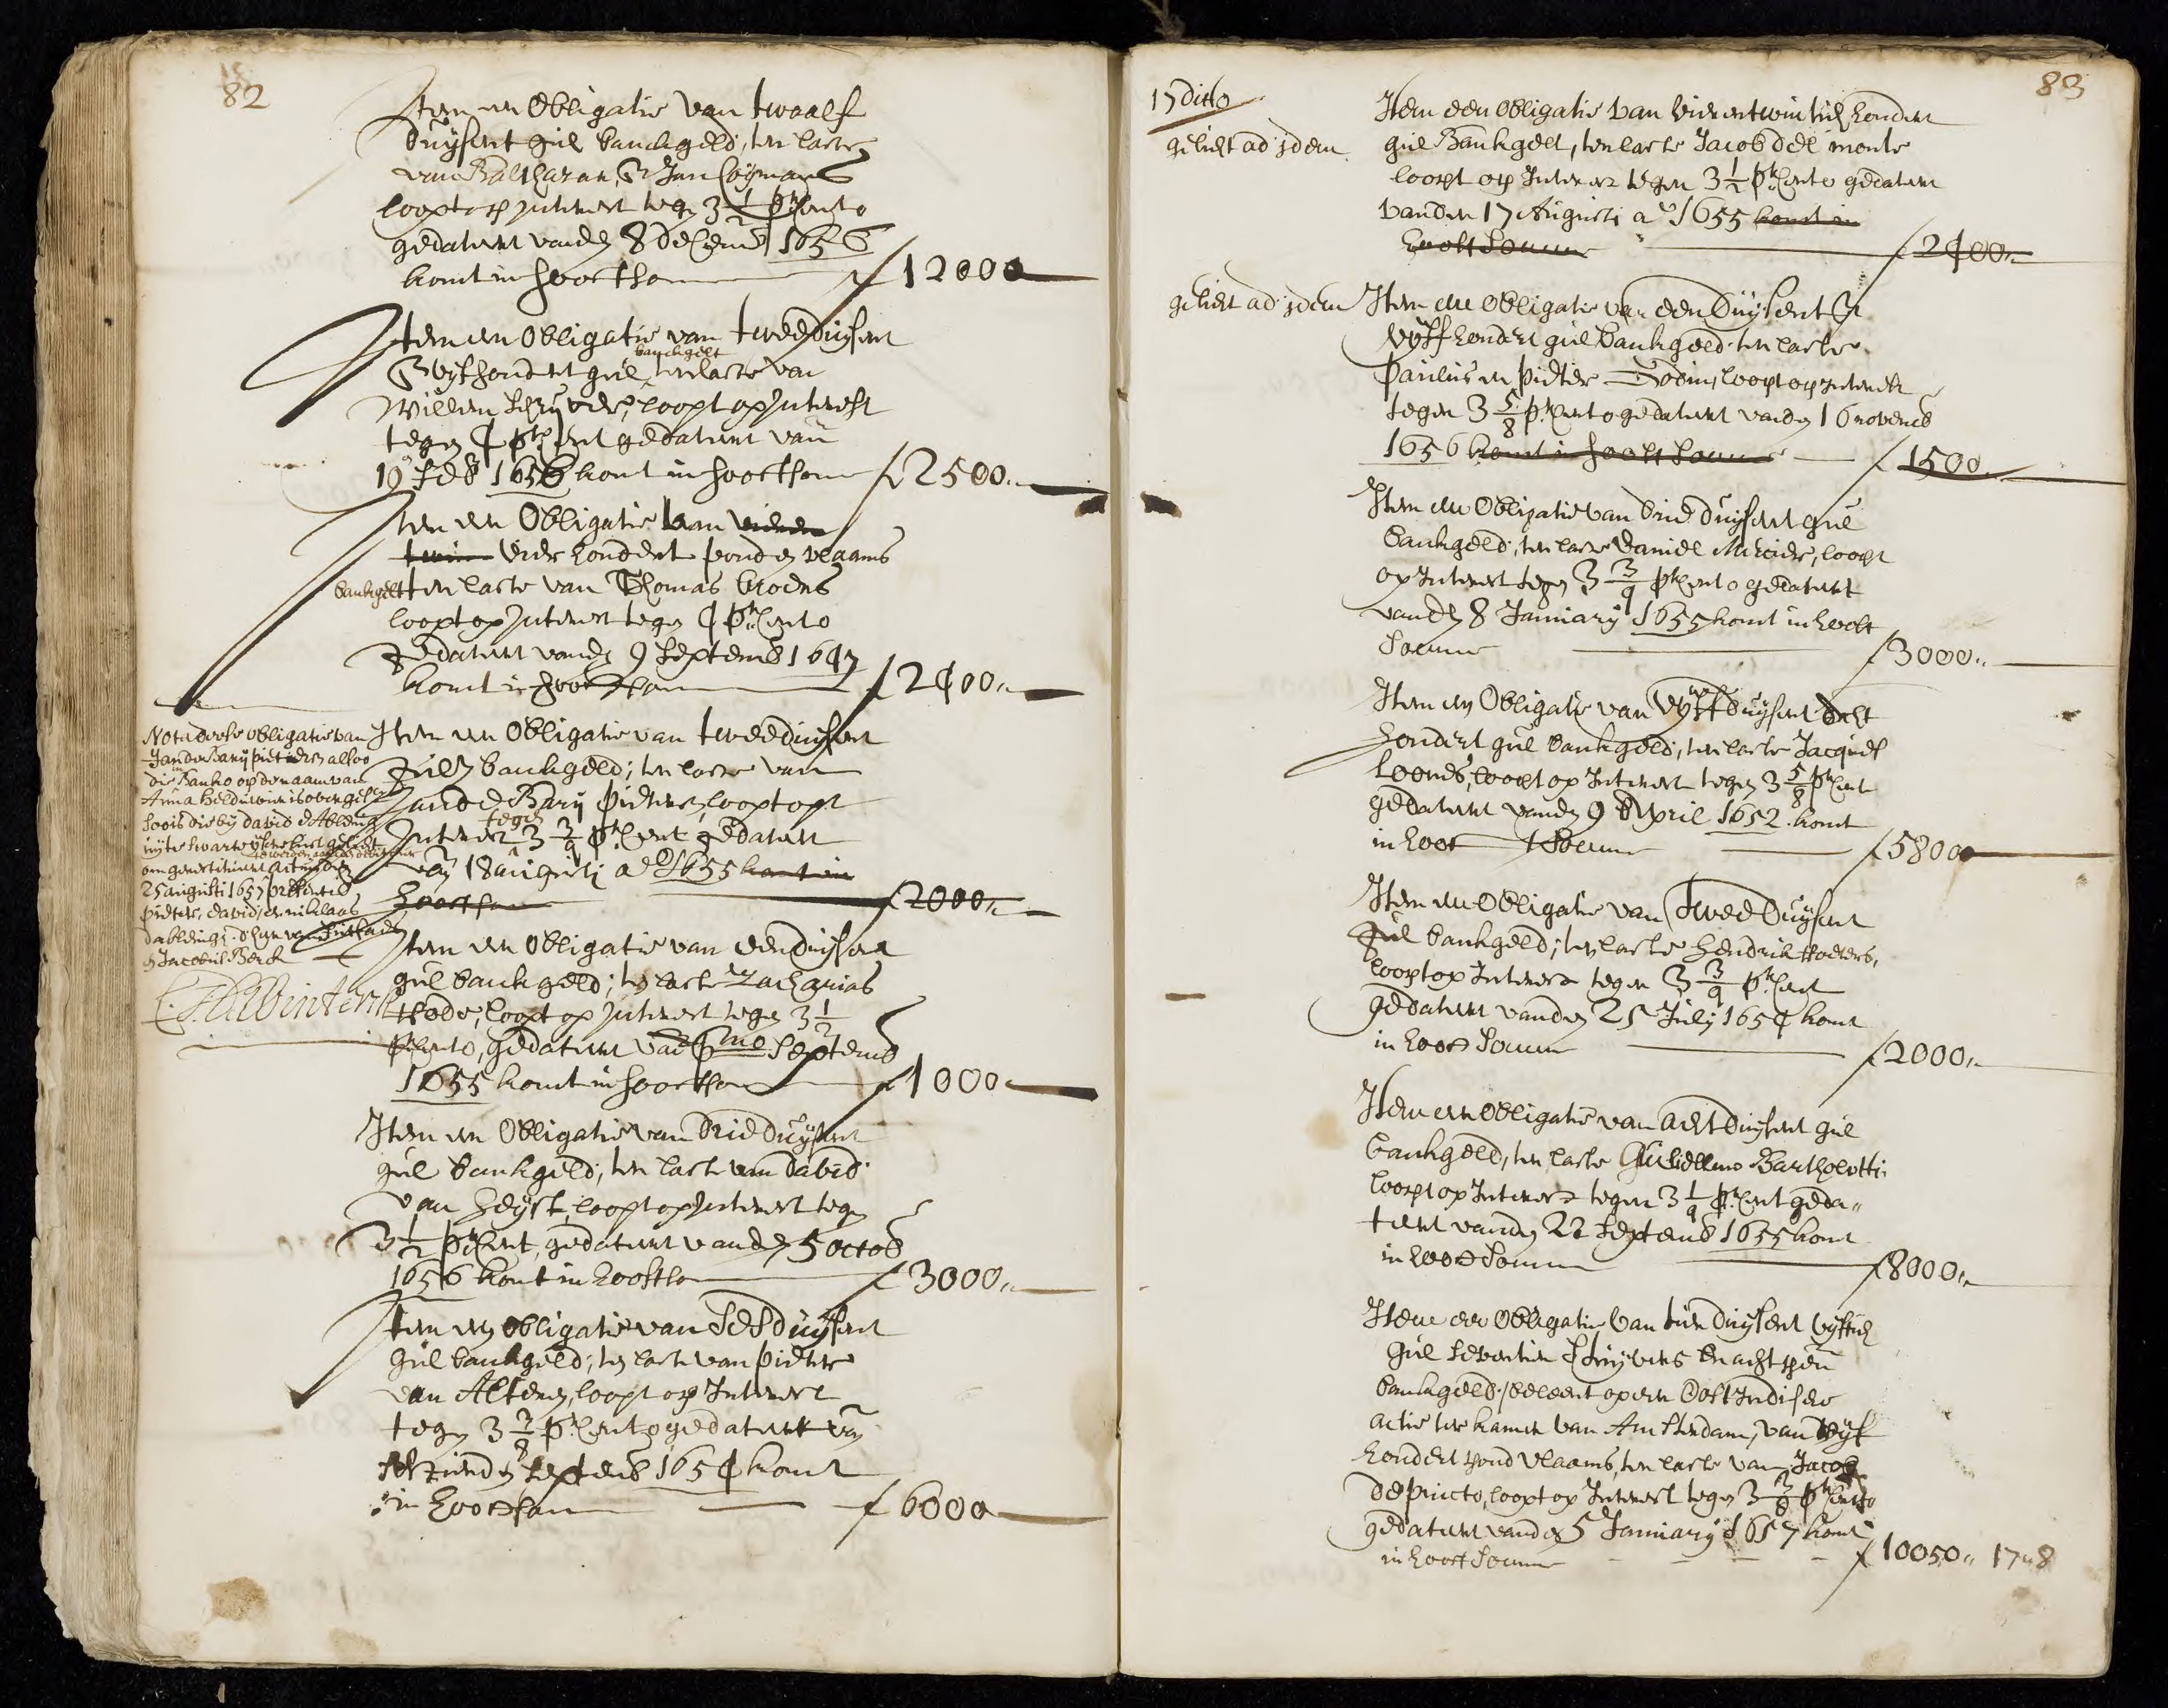 82
Item een Obligatie van twaalf
duijsent gul banckgeld, ten laste
van Balthazar, & Jan Coijmans
loopt op Interest tegen 3 1/2 p.r Cento
gedateert vanden 8 decemb 1656
komt in hooftsom f 12000
Item een Obligatie van tweeduijsent
& vijfhondert gul banckgelt ten laste van
Willem Schrijver, loopt op Interest
tegen 4 p.r Cent gedateert van
19 feb 1656 komt in hooftsom f 2500,,
Item een Obligatie van vieren
twin vier hondert ponden vlaams
bankgelt ten laste van Thomas Broens
loopt op Interest tegen 4 p.r Cento
gedateert vanden 9 Septemb 1647
komt in hooftsom f 2400,,
Item een Obligatie van tweeduijsent
gulden bankgeld; ten laste van
Jan de Barij pietersen, loopt op
Interest tegen 3 3/4 p.r Cent gedateert
van 18 augusti ao 1655 komt in
hooftsom f 2000,,
Nota deese obligatie van
Jan de Barij pietersen alsoo
die in Banko op den naam van
Anna Belduwin is
soo is die bij david d'Ableing
25 augusti 1657 presentib
pieter, david, en niklaas
dableing.
& Jacobus Berck
Item een Obligatie van eenduijsent
gul bankgeld; ten laste Zacharias
Rode, loopt op Interest tegen 3 1/2
p.r Cento, gedateert van pmo Septemb
1655 komt in hooftsom f 1000
Item een Obligatie van drie duijsent
gul bankgeld, ten laste van david
van heijst, loopt op Interest tegen
3 1/2 p.r Cent, gedateert vanden 5 octob
1656 komt in hooftsom f 3000,,
Item een obligatie van Sesduijsent
gul bankgeld; ten laste van pieter
van Alteren, loopt op Interest
tegen 3 3/8 p.r Cento gedateert van
Septemb 1654 komt
in hooftsom f 6000
83
17 ditto
gelicht ad idem
Item een obligatie van vierentwintich hondert
gul Bankgelt, ten laste Jacob del monte
loopt op Interest tegen 3 1/2 p.r Cento gedateert
vanden 17 Augusti ao 1655 komt in
hooft Somme f 2400,,
gelicht ad idem
Item een obligatie van een Duijsent &
vijff hondert gul bankgeld ten laste
Paulus en pieter Godin, loopt op Interest
tegen 3 5/8 p.r Cento gedateert vanden 16 novemb
1656 komt in hooft Somme f 1500
Item een Obligatie van drie duijsent gul
bankgeld, ten laste Daniel Mercier, loopt
op Interest tegen 3 3/4 p.r Cento gedateert
vanden 8 Januarij 1655 komt in hooft
Somme f 3000,,
Item een Obligatie van vijff duijsent acht
hondert gul bankgeld, ten laste Jacques
Loones, loopt op Interest tegen 3 5/8 p.r Cent
gedateert vanden 9 April 1652 komt
in hooft Somme f 5800
Item een Obligatie van Twee duijsent
gul bankgeld; ten laste hendrik
loopt op Interest tegen 3 3/4 p.r Cent
gedateert vanden 25 July 1654 komt
in hooft Somme f 2000,,
Item een obligatie van acht duijsent gul
bankgeld, ten laste Guilielmo Bartholotti
loopt op Interest tegen 3 1/4 p.r Cent geda,,
teert vanden 22 Septemb 1655 komt
in hooft Somme f 8000,,
Item een Obligatie van tien duijsent vijftich
gul Seventien Stuijvers en acht pen
bankgeld, beleent op een Oost Indische
actie ter kamer van Amsterdam, van vijf
hondert pond vlaams, ten laste van Jacob
de pincto, loopt op Interest tegen 3 3/8 p.r Cento
gedateert vanden 5 Januarij 1657 komt
in hooft Somme f 10050,, 17,, 8